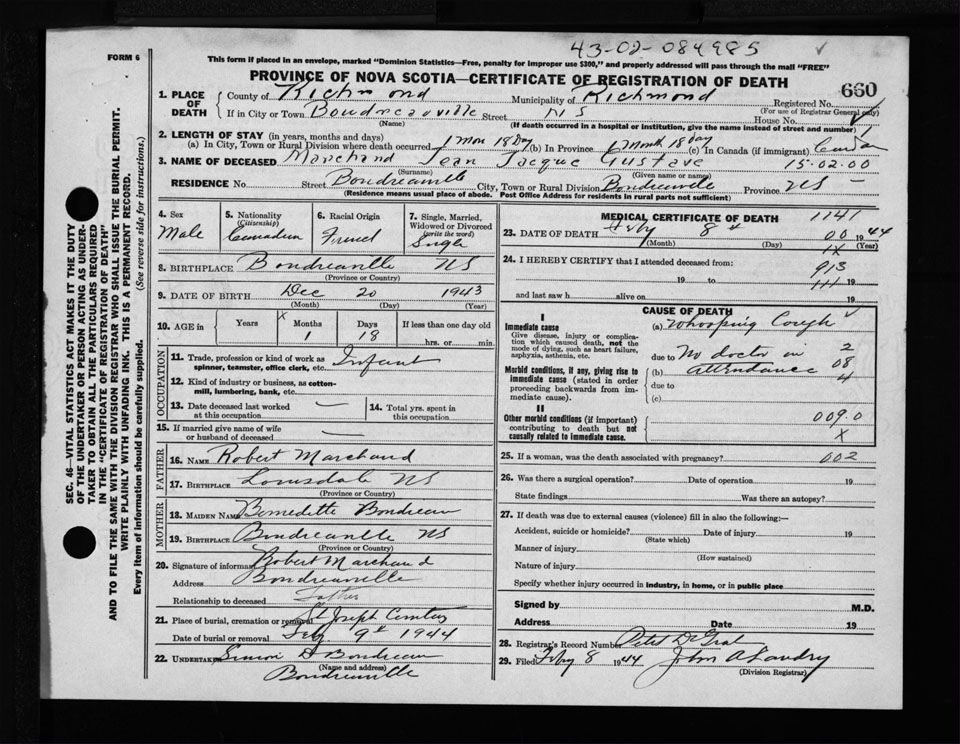 43-02-084985
FORM 6
This form if placed in an envelope, marked "Dominion Statistics—Free, penalty for improper use $300," and properly addressed will pass through the mail "FREE"
PROVINCE OF NOVA SCOTIA—CERTIFICATE OF REGISTRATION OF DEATH
660
1. PLACE OF DEATH
County of Richmond Municipality of Richmond Registered No.
(For use of Registrar General only)
If in City or Town Boudreauville Street NS House No.
(Name) (If death occurred in a hospital or institution, give the name instead of street and number)
2. LENGTH OF STAY (in years, months and days)
(a) In City, Town or Rural Division where death occurred 1 Mon 18 Day (b) In Province 1 Month 18 Day (c) In Canada (if immigrant)
3. NAME OF DECEASED Marchand Jean Jacque Gustave 15-02.00
(Surname) (Given name or names)
RESIDENCE No. Street Boudreauville City, Town or Rural Division Boudreauville Province NS
(Residence means usual place of abode. Post Office Address for residents in rural parts not sufficient)
4. Sex
Male
5. Nationality
(Citizenship)
Canadian
6. Racial Origin
French
7. Single, Married, Widowed or Divorced
(write the word)
Single
8. BIRTHPLACE Boudreauville NS
(Province or Country)
9. DATE OF BIRTH Dec 20 1943
(Month) (Day) (Year)
10. AGE in Years Months Days If less than one day old
X 1 18 hrs. or min.
OCCUPATION
11. Trade, profession or kind of work as spinner, teamster, office clerk, etc. Infant
12. Kind of industry or business, as cotton-mill, lumbering, bank, etc.
13. Date deceased last worked at this occupation
14. Total yrs. spent in this occupation
15. If married give name of wife or husband of deceased
FATHER
16. NAME Robert Marchand
17. BIRTHPLACE Louisdale NS
(Province or Country)
MOTHER
18. MAIDEN NAME Bernedette Boudreau
19. BIRTHPLACE Boudreauville NS
(Province or Country)
20. Signature of informant Robert Marchand
Address Boudreauville
Relationship to deceased Father
21. Place of burial, cremation or removal St Joseph
Date of burial or removal Feby 9th 1944
22. UNDERTAKER Simon D Boudreau
(Name and address)
Boudreauville
MEDICAL CERTIFICATE OF DEATH 1141
23. DATE OF DEATH Feby 8th 00 1944
(Month) (Day) 1X (Year)
24. I HEREBY CERTIFY that I attended deceased from: 913
19 to 111 19
and last saw h alive on 19
CAUSE OF DEATH
I
Immediate cause
Give disease, injury or complication which caused death, not the mode of dying, such as heart failure, asphyxia, asthenia, etc.
(a) Whooping Cough
due to No doctor in 2
(b) attendance 08
due to 4
(c)
Morbid conditions, if any, giving rise to immediate cause (stated in order proceeding backwards from immediate cause).
II
Other morbid conditions (if important) contributing to death but not causally related to immediate cause.
009.0
X
25. If a woman, was the death associated with pregnancy? 002
26. Was there a surgical operation? Date of operation 19
State findings Was there an autopsy?
27. If death was due to external causes (violence) fill in also the following:—
Accident, suicide or homicide? Date of injury 19
(State which)
Manner of injury
(How sustained)
Nature of injury
Specify whether injury occurred in industry, in home, or in public place
Signed by M.D.
Address Date 19
28. Registrar's Record Number
29. Filed Feby 8 1944 John A Landry
(Division Registrar)
SEC. 46—VITAL STATISTICS ACT MAKES IT THE DUTY
OF THE UNDERTAKER OR PERSON ACTING AS UNDER-
TAKER TO OBTAIN ALL THE PARTICULARS REQUIRED
IN THE "CERTIFICATE OF REGISTRATION OF DEATH"
AND TO FILE THE SAME WITH THE DIVISION REGISTRAR WHO SHALL ISSUE THE BURIAL PERMIT.
WRITE PLAINLY WITH UNFADING INK. THIS IS A PERMANENT RECORD.
Every item of information should be carefully supplied. (See reverse side for instructions.)